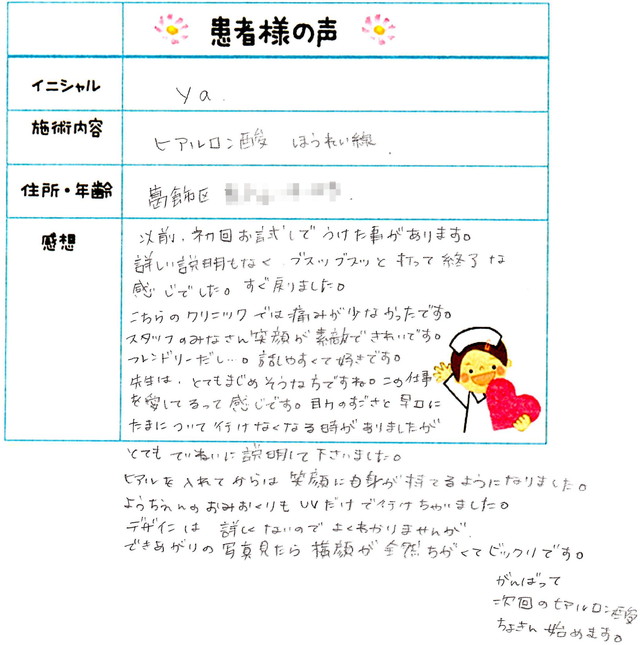 患者様の声
イニシャル
Ya.
施術内容
ヒアルロン酸 ほうれい線
住所・年齢
葛飾区
感想
以前、初回お試しでうけた事があります。
詳しい説明もなく、ブスッブスッと打って終了な
感じでした。すぐ戻りました。
こちらのクリニックでは痛みが少なかったです。
スタッフのみなさん笑顔が素敵できれいです。
フレンドリーだし…。話しやすくて好きです。
先生は、とてもまじめそうな方ですね。この仕事
を愛してるって感じです。目力のすごさと早口に
たまについて行けなくなる時がありましたが
とてもていねいに説明して下さいました。
ヒアルを入れてからは笑顔に自身が持てるようになりました。
ようちえんのおみおくりもUVだけで行けちゃいました。
デザインは詳しくないのでよくわかりませんが、
できあがりの写真見たら横顔が全然ちがくてビックリです。
がんばって
次回のヒアルロン酸
ちょきん始めます。